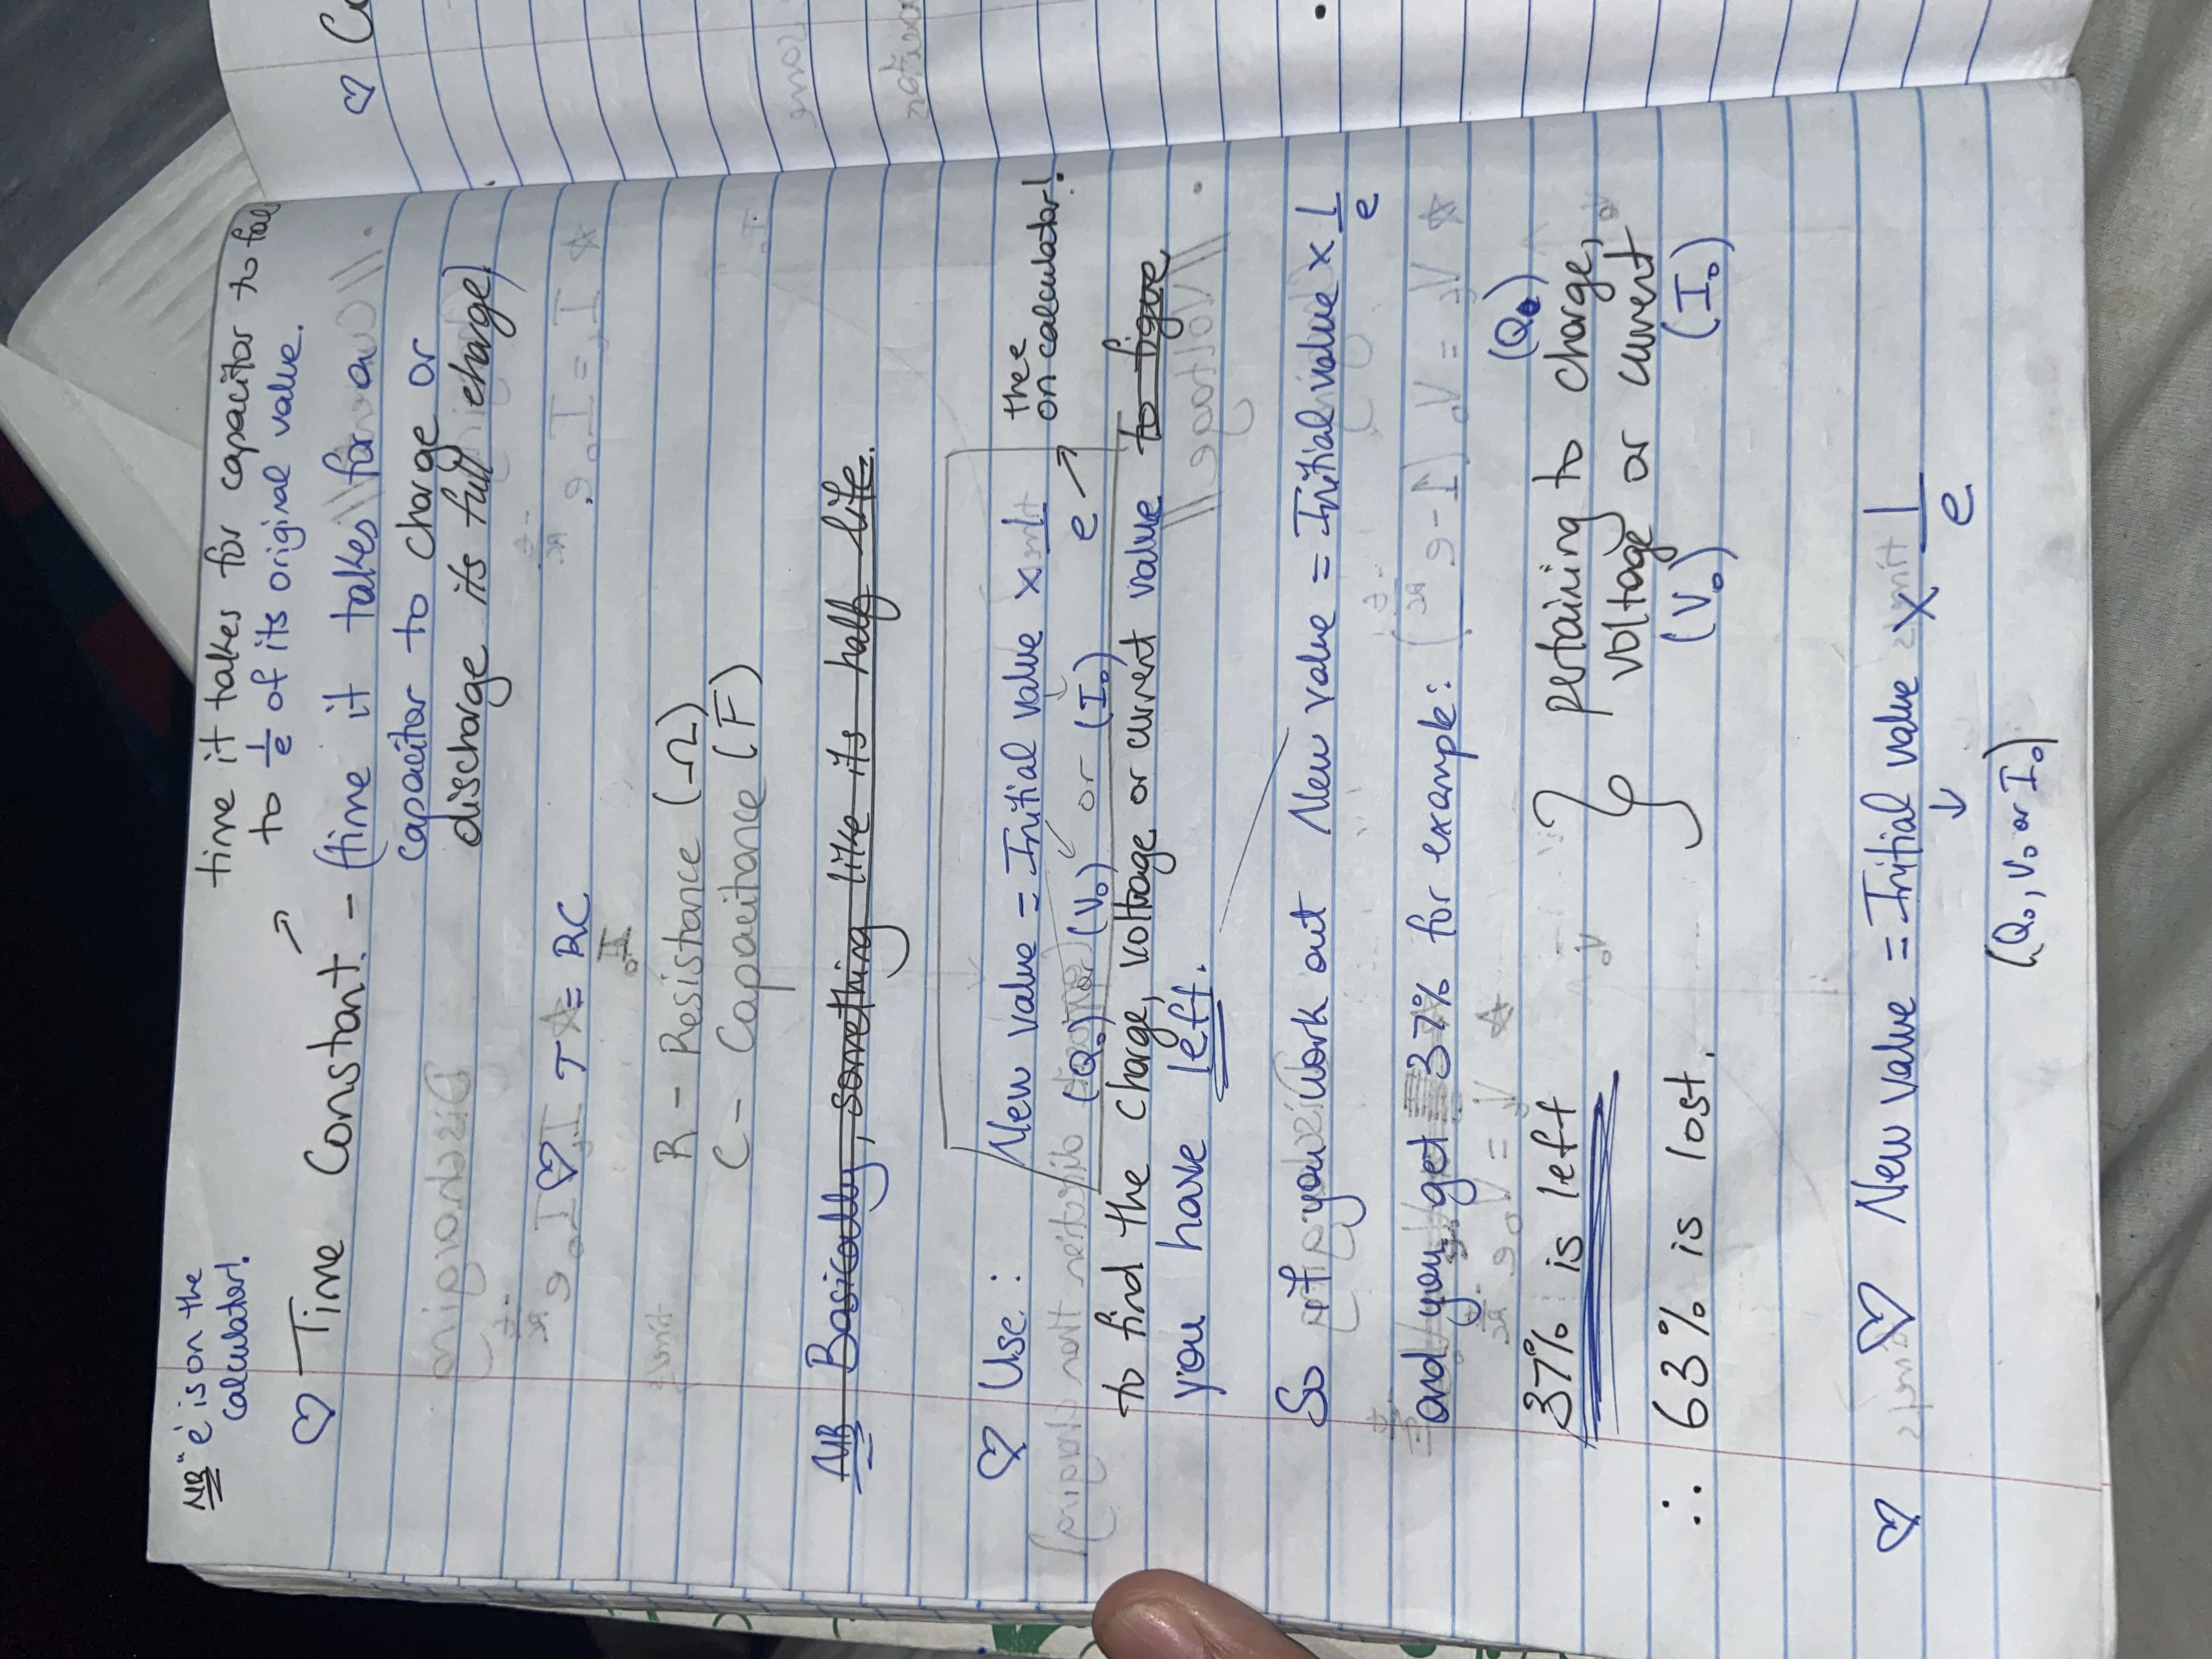 NB "e' is on the
calculator!
time it takes for capacitor to fall
to 1/e of its original value.
♡ Time Constant. - (time it takes for an
capacitor to charge or
discharge its full charge)
♡ τ = RC
R - Resistance (Ω)
C - Capacitance (F)
NB Basically, something like its half life.
♡ Use :
New value = Initial value × 1/e → the e on calculator!
(Q₀) (V₀) or (I₀)
to find the charge, voltage or current value to figure
you have left.
So if you work out New value = Initial value × 1/e
and you get 37% for example:
37% is left
∴ 63% is lost.
pertaining to charge, (Q₀)
voltage or current
(V₀) (I₀)
♡ ♡ New value = Initial value × 1/e
↓
(Q₀, V₀ or I₀)